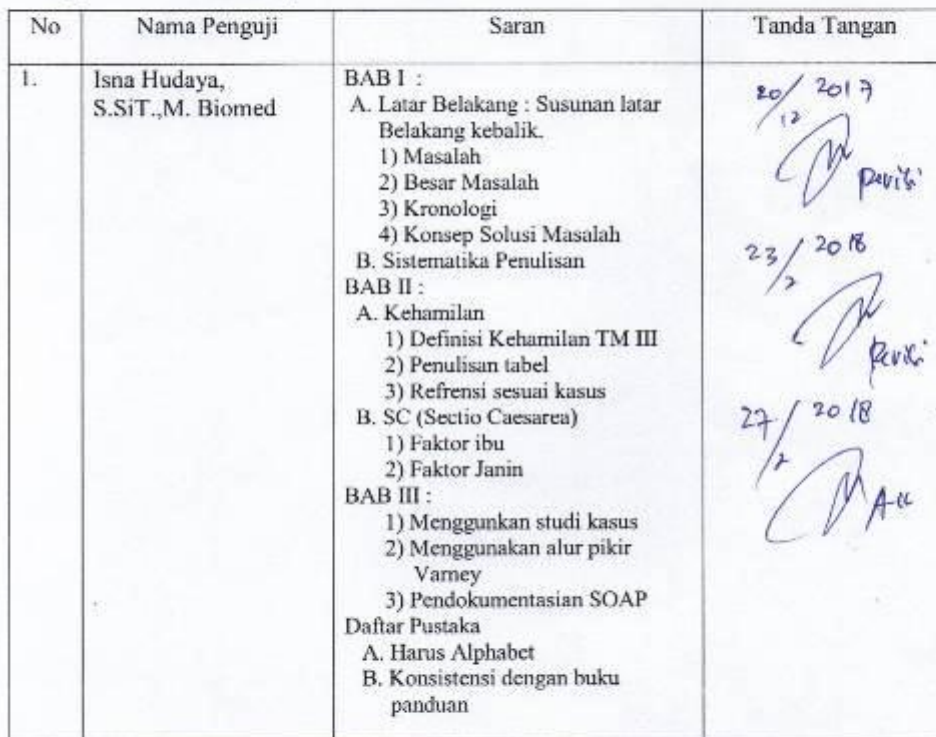 No
Nama Penguji
Saran
Tanda Tangan
1.
Isna Hudaya,
S.SiT.,M. Biomed
BAB I :
A. Latar Belakang : Susunan latar
Belakang kebalik.
1) Masalah
2) Besar Masalah
3) Kronologi
4) Konsep Solusi Masalah
B. Sistematika Penulisan
BAB II :
A. Kehamilan
1) Definisi Kehamilan TM III
2) Penulisan tabel
3) Refrensi sesuai kasus
B. SC (Sectio Caesarea)
1) Faktor ibu
2) Faktor Janin
BAB III :
1) Menggunkan studi kasus
2) Menggunakan alur pikir
Varney
3) Pendokumentasian SOAP
Daftar Pustaka
A. Harus Alphabet
B. Konsistensi dengan buku
panduan
20/12 2017
Revisi
23/2 2018
Revisi
27/2 2018
Acc